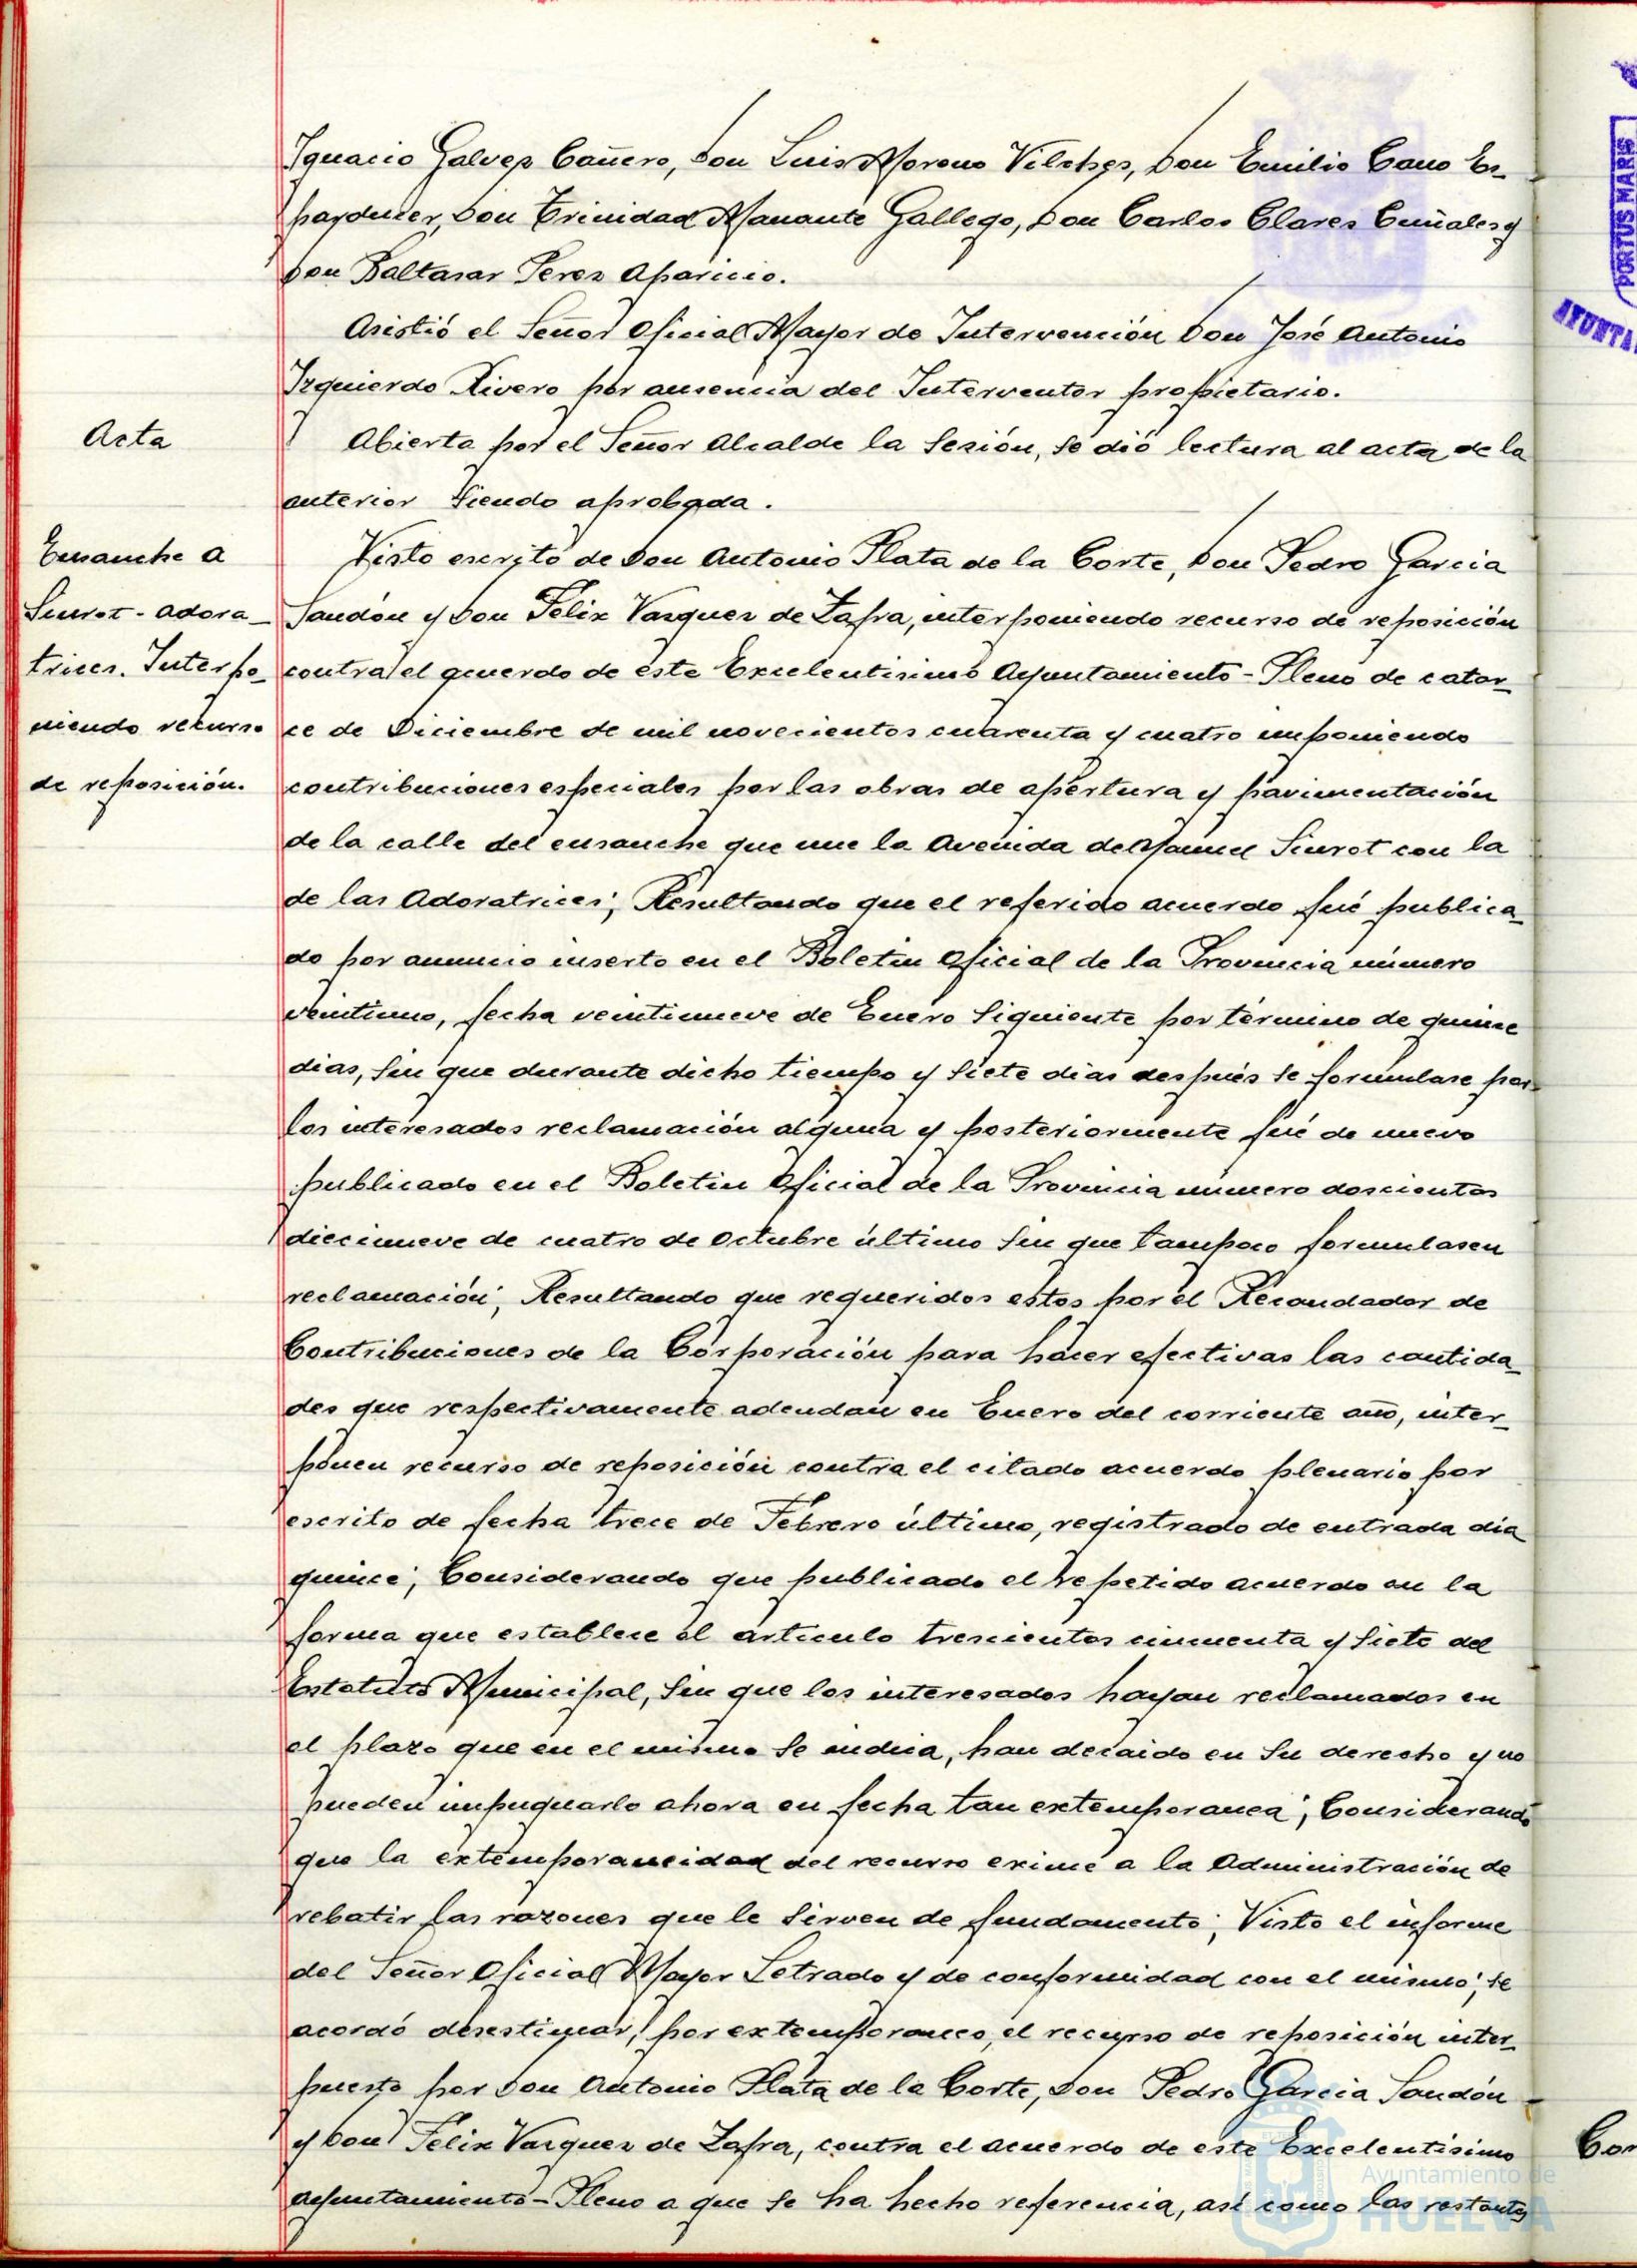 Ignacio Galvez Cañero, Don Luis Moreno Vilches, Don Emilio Cano Es-
parducer, Don Trinidad Manante Gallego, Don Carlos Clares Cuñales y
Don Baltasar Perez Aparicio.
Asistió el Señor Oficial Mayor de Intervención Don José Antonio
Izquierdo Rivero por ausencia del Interventor propietario.
Acta
Abierta por el Señor Alcalde la Sesión, se dió lectura al acta de la
anterior siendo aprobada.
Ensanche a
Siurot-Adora-
trices. Interpo-
niendo recurso
de reposición.
Visto escrito de Don Antonio Plata de la Corte, Don Pedro Garcia
Sandón y Don Felix Vazquez de Zafra, interponiendo recurso de reposición
contra el acuerdo de este Excelentisimo Ayuntamiento-Pleno de cator-
ce de Diciembre de mil novecientos cuarenta y cuatro imponiendo
contribuciones especiales por las obras de apertura y pavimentación
de la calle del ensanche que une la Avenida de Manuel Siurot con la
de las Adoratrices; Resultando que el referido acuerdo fué publica-
do por anuncio inserto en el Boletin Oficial de la Provincia número
veintiuno, fecha veintinueve de Enero siguiente por término de quince
dias, sin que durante dicho tiempo y siete dias después se formulase por
los interesados reclamación alguna y posteriormente fué de nuevo
publicado en el Boletin Oficial de la Provincia número doscientos
diecinueve de cuatro de Octubre último sin que tampoco formulasen
reclamación; Resultando que requeridos estos por el Recaudador de
Contribuciones de la Corporación para hacer efectivas las cantida-
des que respectivamente adeudan en Enero del corriente año, inter-
ponen recurso de reposición contra el citado acuerdo plenario por
escrito de fecha trece de Febrero último, registrado de entrada dia
quince; Considerando que publicado el repetido acuerdo en la
forma que establece el articulo trescientos cincuenta y siete del
Estatuto Municipal, sin que los interesados hayan reclamados en
el plazo que en el mismo se indica, han decaido en su derecho y no
pueden impugnarlo ahora en fecha tan extemporanea; Considerando
que la extemporaneidad del recurso exime a la Administración de
rebatir las razones que le sirven de fundamento; Visto el informe
del Señor Oficial Mayor Letrado y de conformidad con el mismo; se
acordó desestimar, por extemporaneo, el recurso de reposición inter-
puesto por Don Antonio Plata de la Corte, Don Pedro Garcia Sandón
y Don Felix Vazquez de Zafra, contra el acuerdo de este Excelentisimo
Ayuntamiento-Pleno a que se ha hecho referencia, así como las restantes
PORTUS MARIS
AYUNTA
Con
Ayuntamiento de
HUELVA